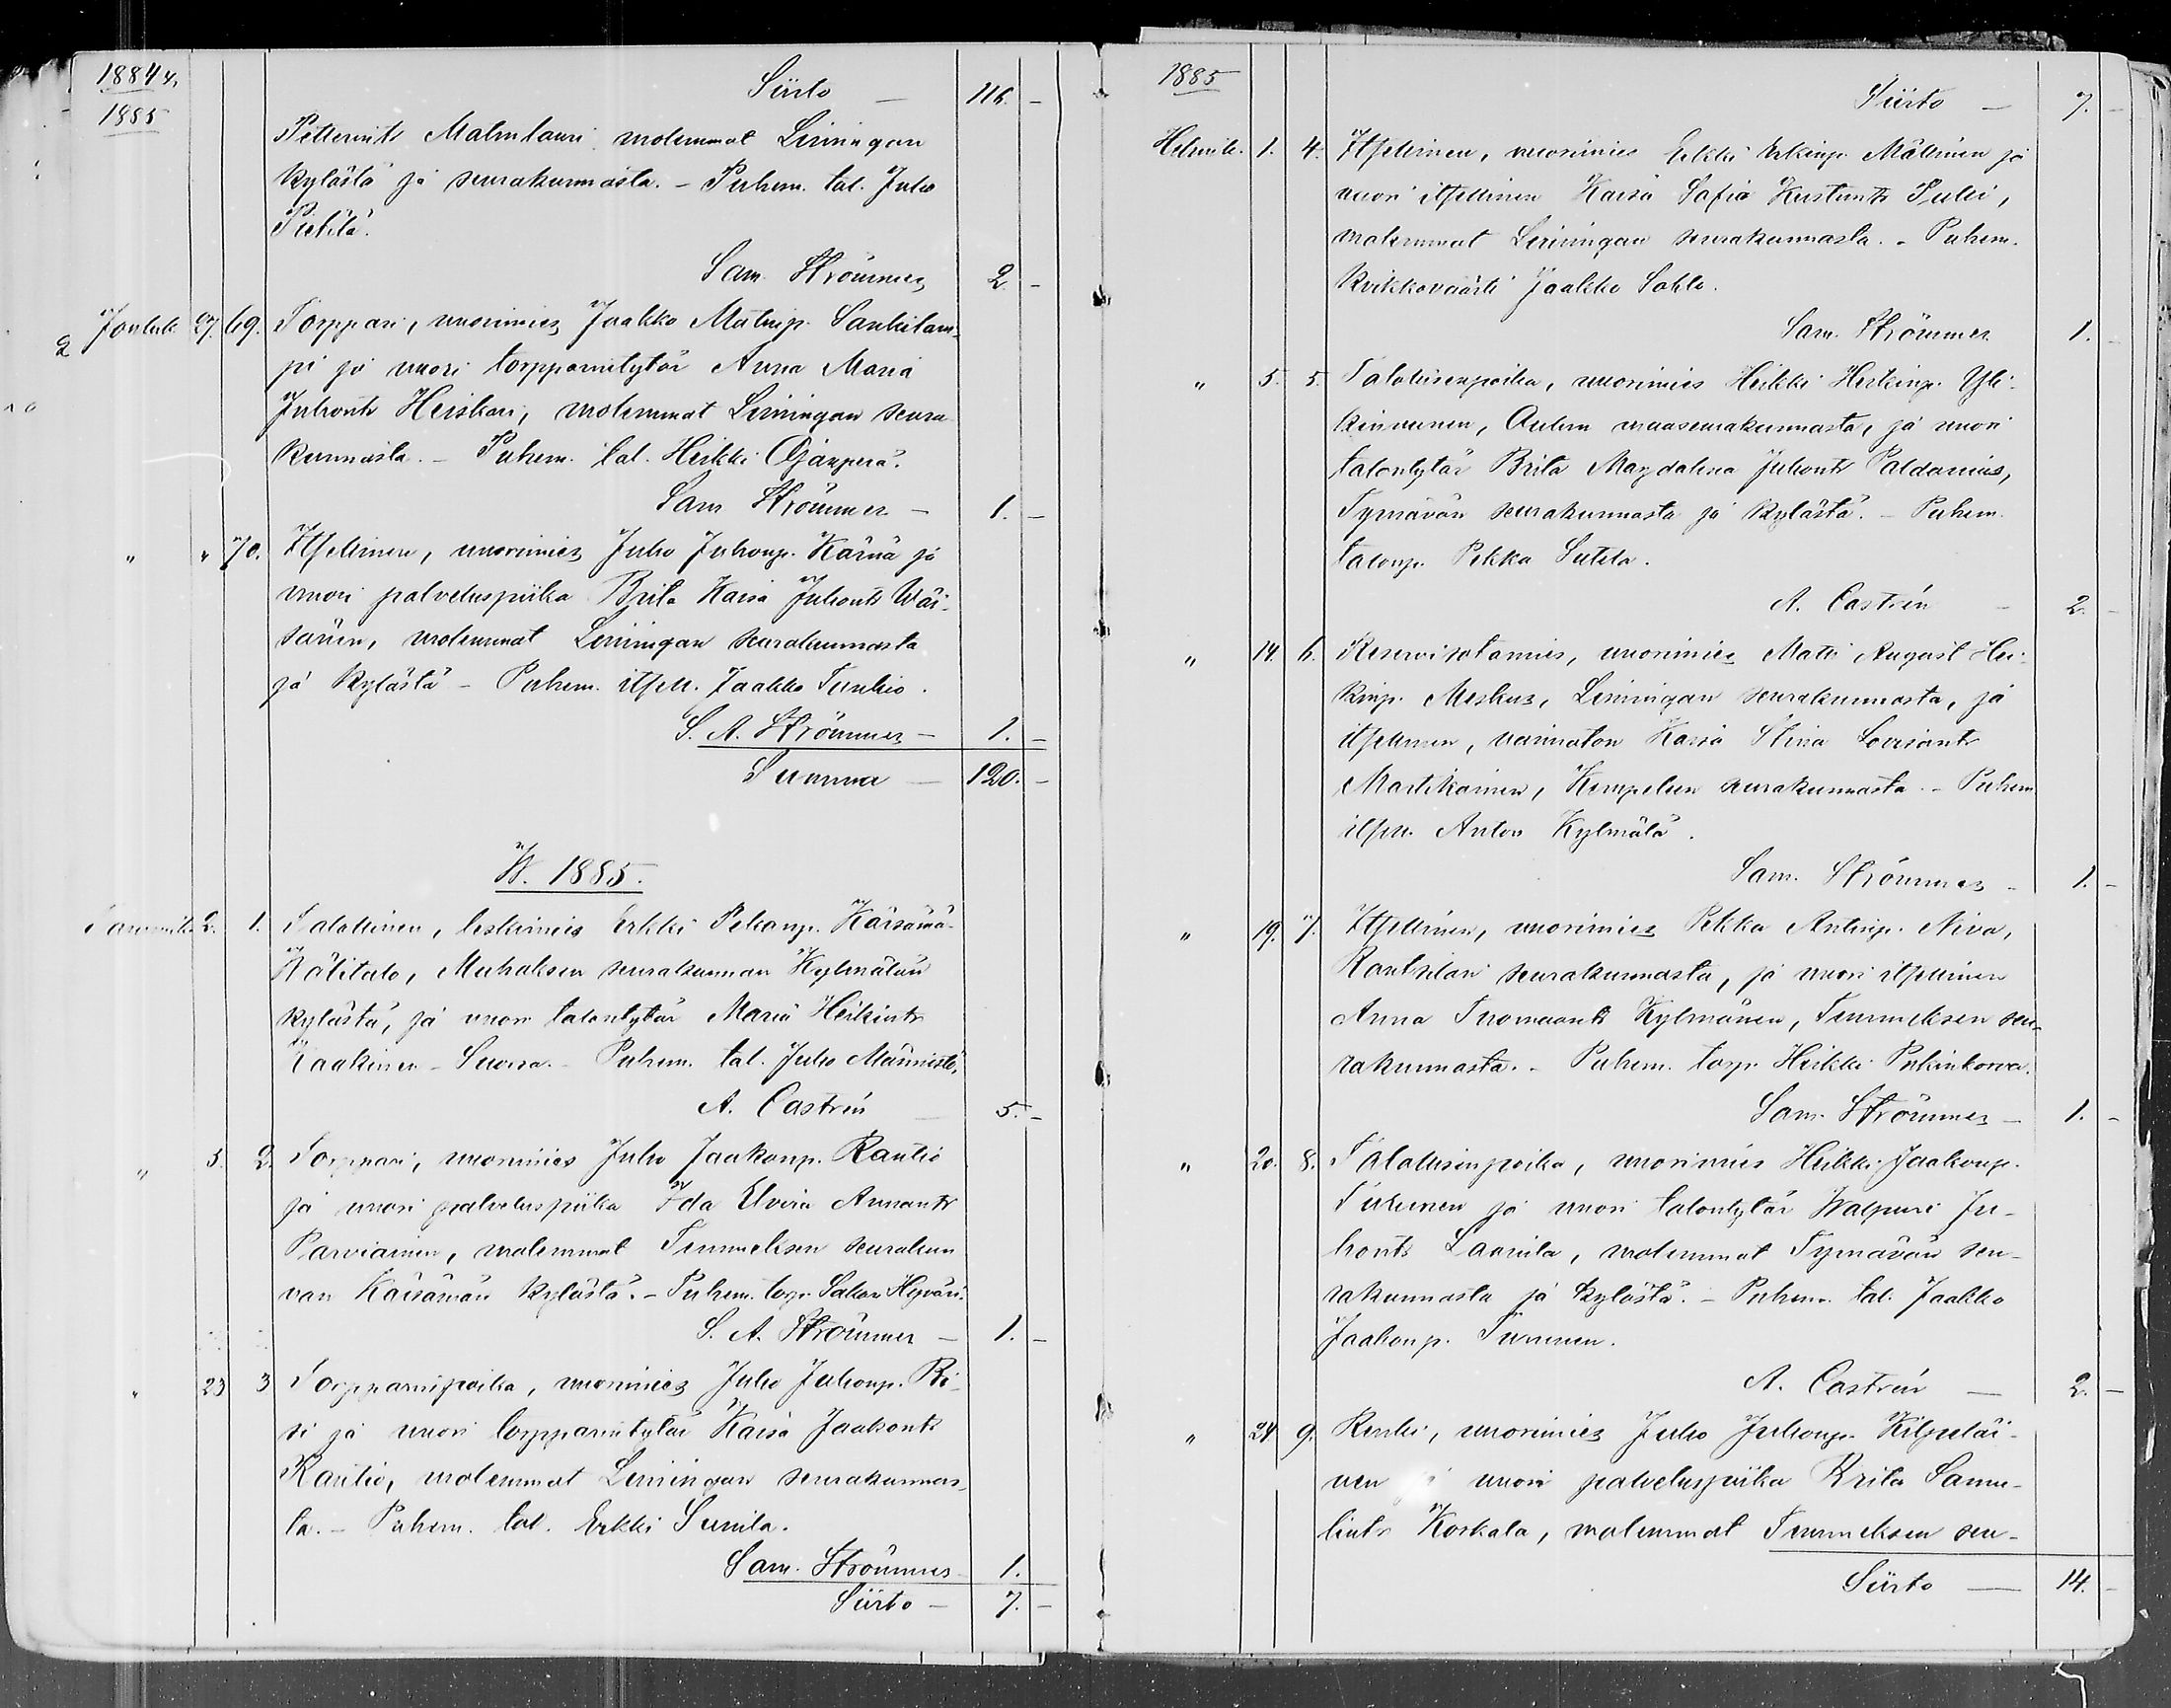 1884 v.
1885
Siirto — 116. —
Petterintr Malmlauri molemmat Limingan
kylästä ja seurakunnasta. – Puhem. tal. Juho
Pietilä.
Sam. Strömmer 2 –
Jouluk. 27. 69. Torppari, nuorimies Jaakko Matinp. Sankilam-
pi ja nuori torpparintytär Anna Maria
Juhontr Heiskari, molemmat Limingan seura
kunnasta. – Puhem. tal. Heikki Ojanperä.
Sam Strömmer – 1. –
" " 70. Itsellinen, nuorimies Juho Juhonp. Kärnä ja
nuori palveluspiika Brita Kaisa Juhontr Wäi-
sänen, molemmat Limingan seurakunnasta
ja kylästä – Puhem. itsell. Jaakko Tunkio.
S. A. Strömmer – 1. –
Summa — 120. –
W. 1885.
Tammik. 2. 1. Talollinen, leskimies Erkki Pekanp. Käisämä-
Rälitalo, Muhoksen seurakunnan Kylmälän
kylästä, ja nuori talontytär Maria Heikintr
Kaakinen-Suorsa. – Puhem. tal. Juho Männistö.
A. Castrén — 5. –
" 5. 2. Torppari, nuorimies Juho Jaakonp. Rautio
ja nuori palveluspiika Ida Elvira Annantr
Parviainen, molemmat Temmeksen seurakun
nan Käisämän kylästä. – Puhem. torp. Sakari Hyväri.
S. A. Strömmer – 1. –
" 23 3 Torpparinpoika, nuorimies Juho Juhonp. Ri-
si ja nuori torpparintytär Kaisa Jaakontr
Rautio, molemmat Limingan seurakunnas-
ta. – Puhem. tal. Erkki Sunila.
Sam. Strömmer 1.
Siirto – 7. –
1885
Siirto — 7. –
Helmik. 1. 4. Itsellinen, nuorimies Erkki Erkinp. Mällinen ja
nuori itsellinen Kaisa Safia Kustuntr Pulli,
molemmat Limingan seurakunnasta. – Puhem.
kvikkovääpli Jaakko Sahlo.
Sam. Strömmer 1. –
" 5. 5. Talollisenpoika, nuorimies Heikki Heikinp. Yli-
kinnunen, Oulun maaseurakunnasta, ja nuori
talontytär Brita Magdalena Juhontr Paldanius,
Tyrnävän seurakunnasta ja kylästä. – Puhem.
talonp. Pekka Sutela.
A. Castrén – 2. –
" 14. 6. Reservisotamies, nuorimies Matti August Hei-
kinp. Meskus, Limingan seurakunnasta, ja
itsellinen, vaimaton Kaisa Stiina Loviisantr
Martikainen, Kempeleen seurakunnasta. – Puhem.
itsell. Anton Kylmälä.
Sam. Strömmer – 1. –
" 19. 7. Itsellinen, nuorimies Pekka Antinp. Niva,
Rantsilan seurakunnasta, ja nuori itsellinen
Anna Tuomaantr Kylmänen, Temmeksen seu-
rakunnasta. – Puhem. torp. Heikki Pukinkorva.
Sam. Strömmer – 1. –
" 20. 8. Talollisenpoika, nuorimies Heikki Jaakonp.
Turunen ja nuori talontytär Walpuri Ju-
hontr Laurila, molemmat Tyrnävän seu-
rakunnasta ja kylästä. – Puhem. tal. Jaakko
Jaakonp. Turunen.
A. Castrén — 2. –
" 24 9. Renki, nuorimies Juho Juhonp. Kilpeläi-
nen nuori palveluspiika Brita Samu-
lintr Korkala, molemmat Temmeksen seu-
Siirto — 14. –